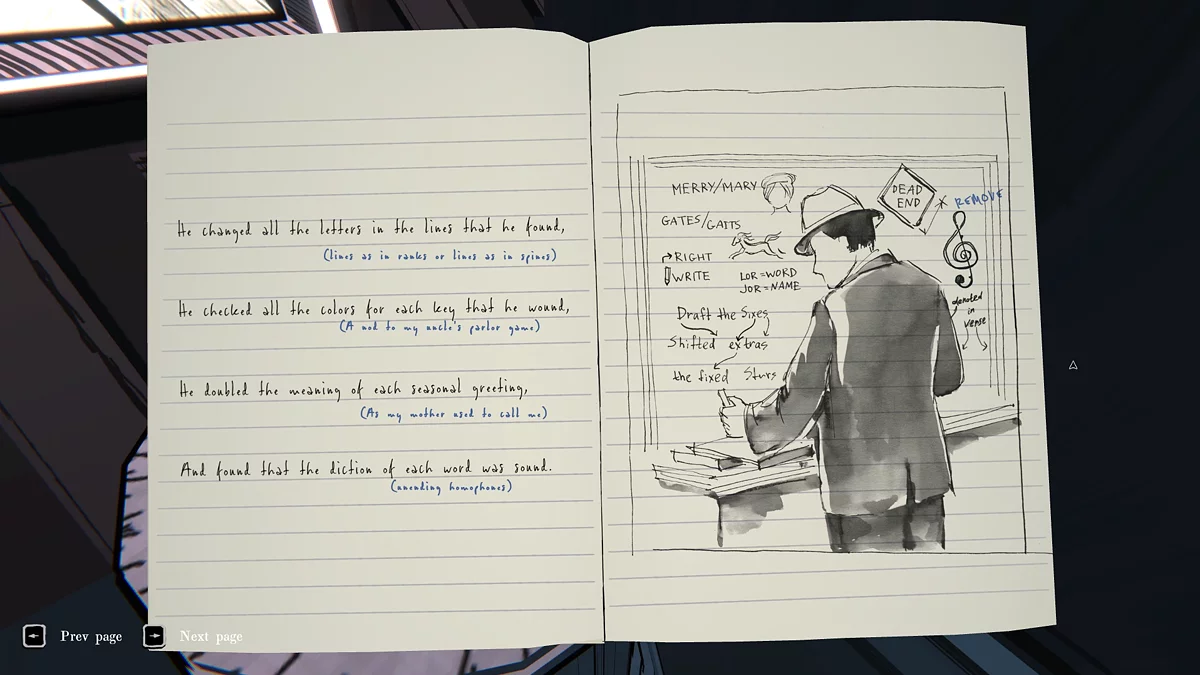 He changed all the letters in the lines that he found,
(lines as in ranks or lines as in spines)
He checked all the colors for each key that he wound,
(A nod to my uncle's parlor game)
He doubled the meaning of each seasonal greeting,
(As my mother used to call me)
And found that the diction of each word was sound.
(unending homophones)
MERRY/MARY
GATES/GAITS
RIGHT
WRITE
LOR=WORD
JOR=NAME
Draft the Sixes
Shifted extras
the fixed Stars
DEAD
END
REMOVE
denoted
in
verse
Prev page
Next page